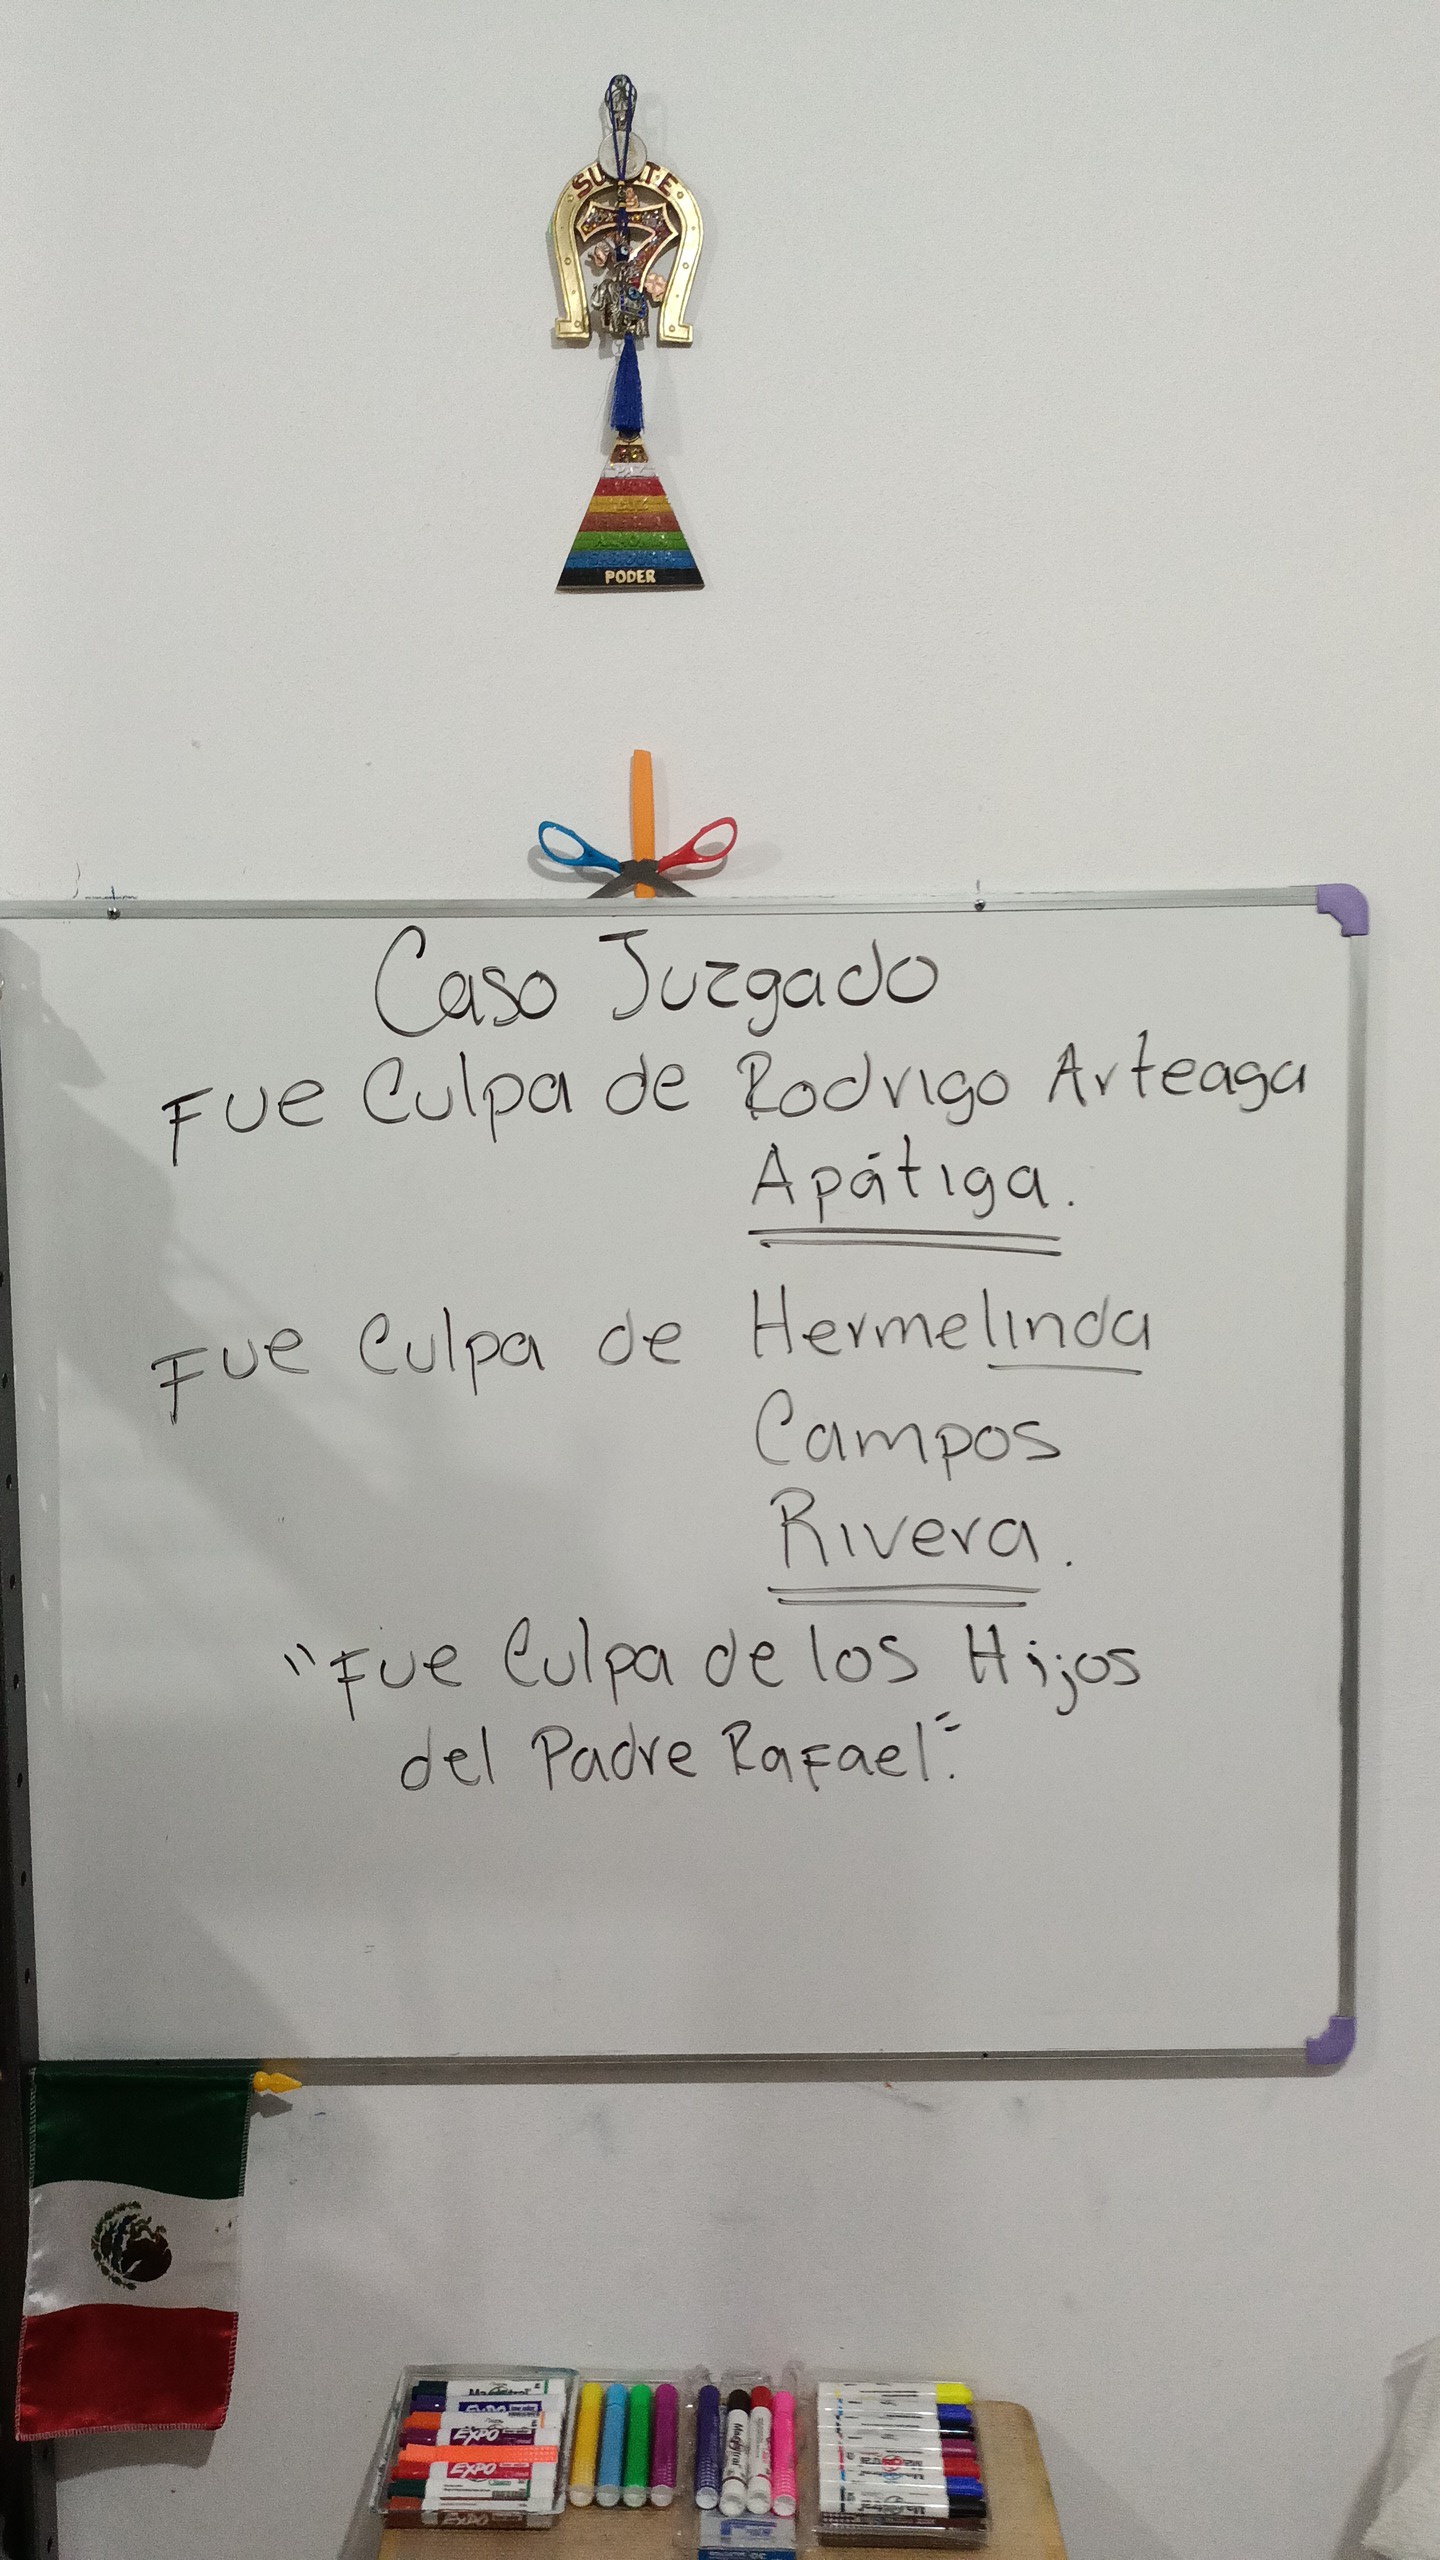 SUERTE
PODER
Caso Juzgado
Fue Culpa de Rodrigo Arteaga
Apátiga.
Fue Culpa de Hermelinda
Campos
Rivera.
"Fue Culpa de los Hijos
del Padre Rafael".
EXPO
EXPO
EXPO
EXPO